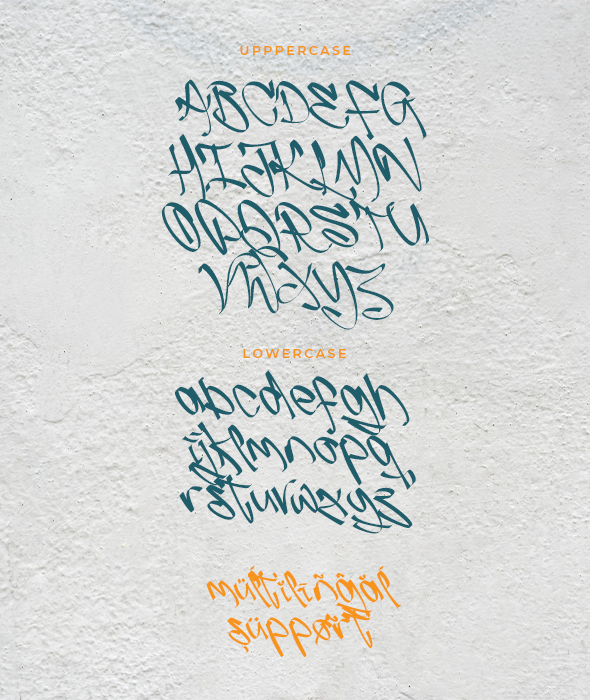 UPPPERCASE
ABCDEFG
HIJKLMN
OPQRSTU
VWXYZ
LOWERCASE
abcdefgh
ijklmnopq
rstuvwxyz
şüppørt